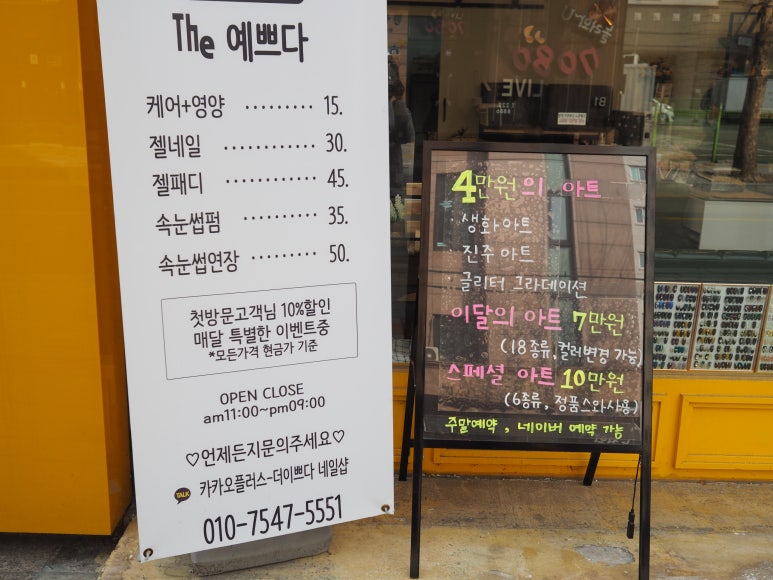 The 예쁘다
케어+영양 ········· 15.
젤네일 ············ 30.
젤패디 ············ 45.
속눈썹펌 ·········· 35.
속눈썹연장 ········· 50.
첫방문고객님 10%할인
매달 특별한 이벤트중
*모든가격 현금가 기준
OPEN CLOSE
am11:00~pm09:00
♡언제든지문의주세요♡
TALK 카카오플러스-더이쁘다 네일샵
010-7547-5551
7080
LIVE
B1
4만원의 아트
· 생화아트
· 진주 아트
· 글리터 그라데이션
이달의 아트 7만원
(18종류, 컬러변경 가능)
스페셜 아트 10만원
(6종류, 정품스와사용)
주말예약, 네이버 예약 가능